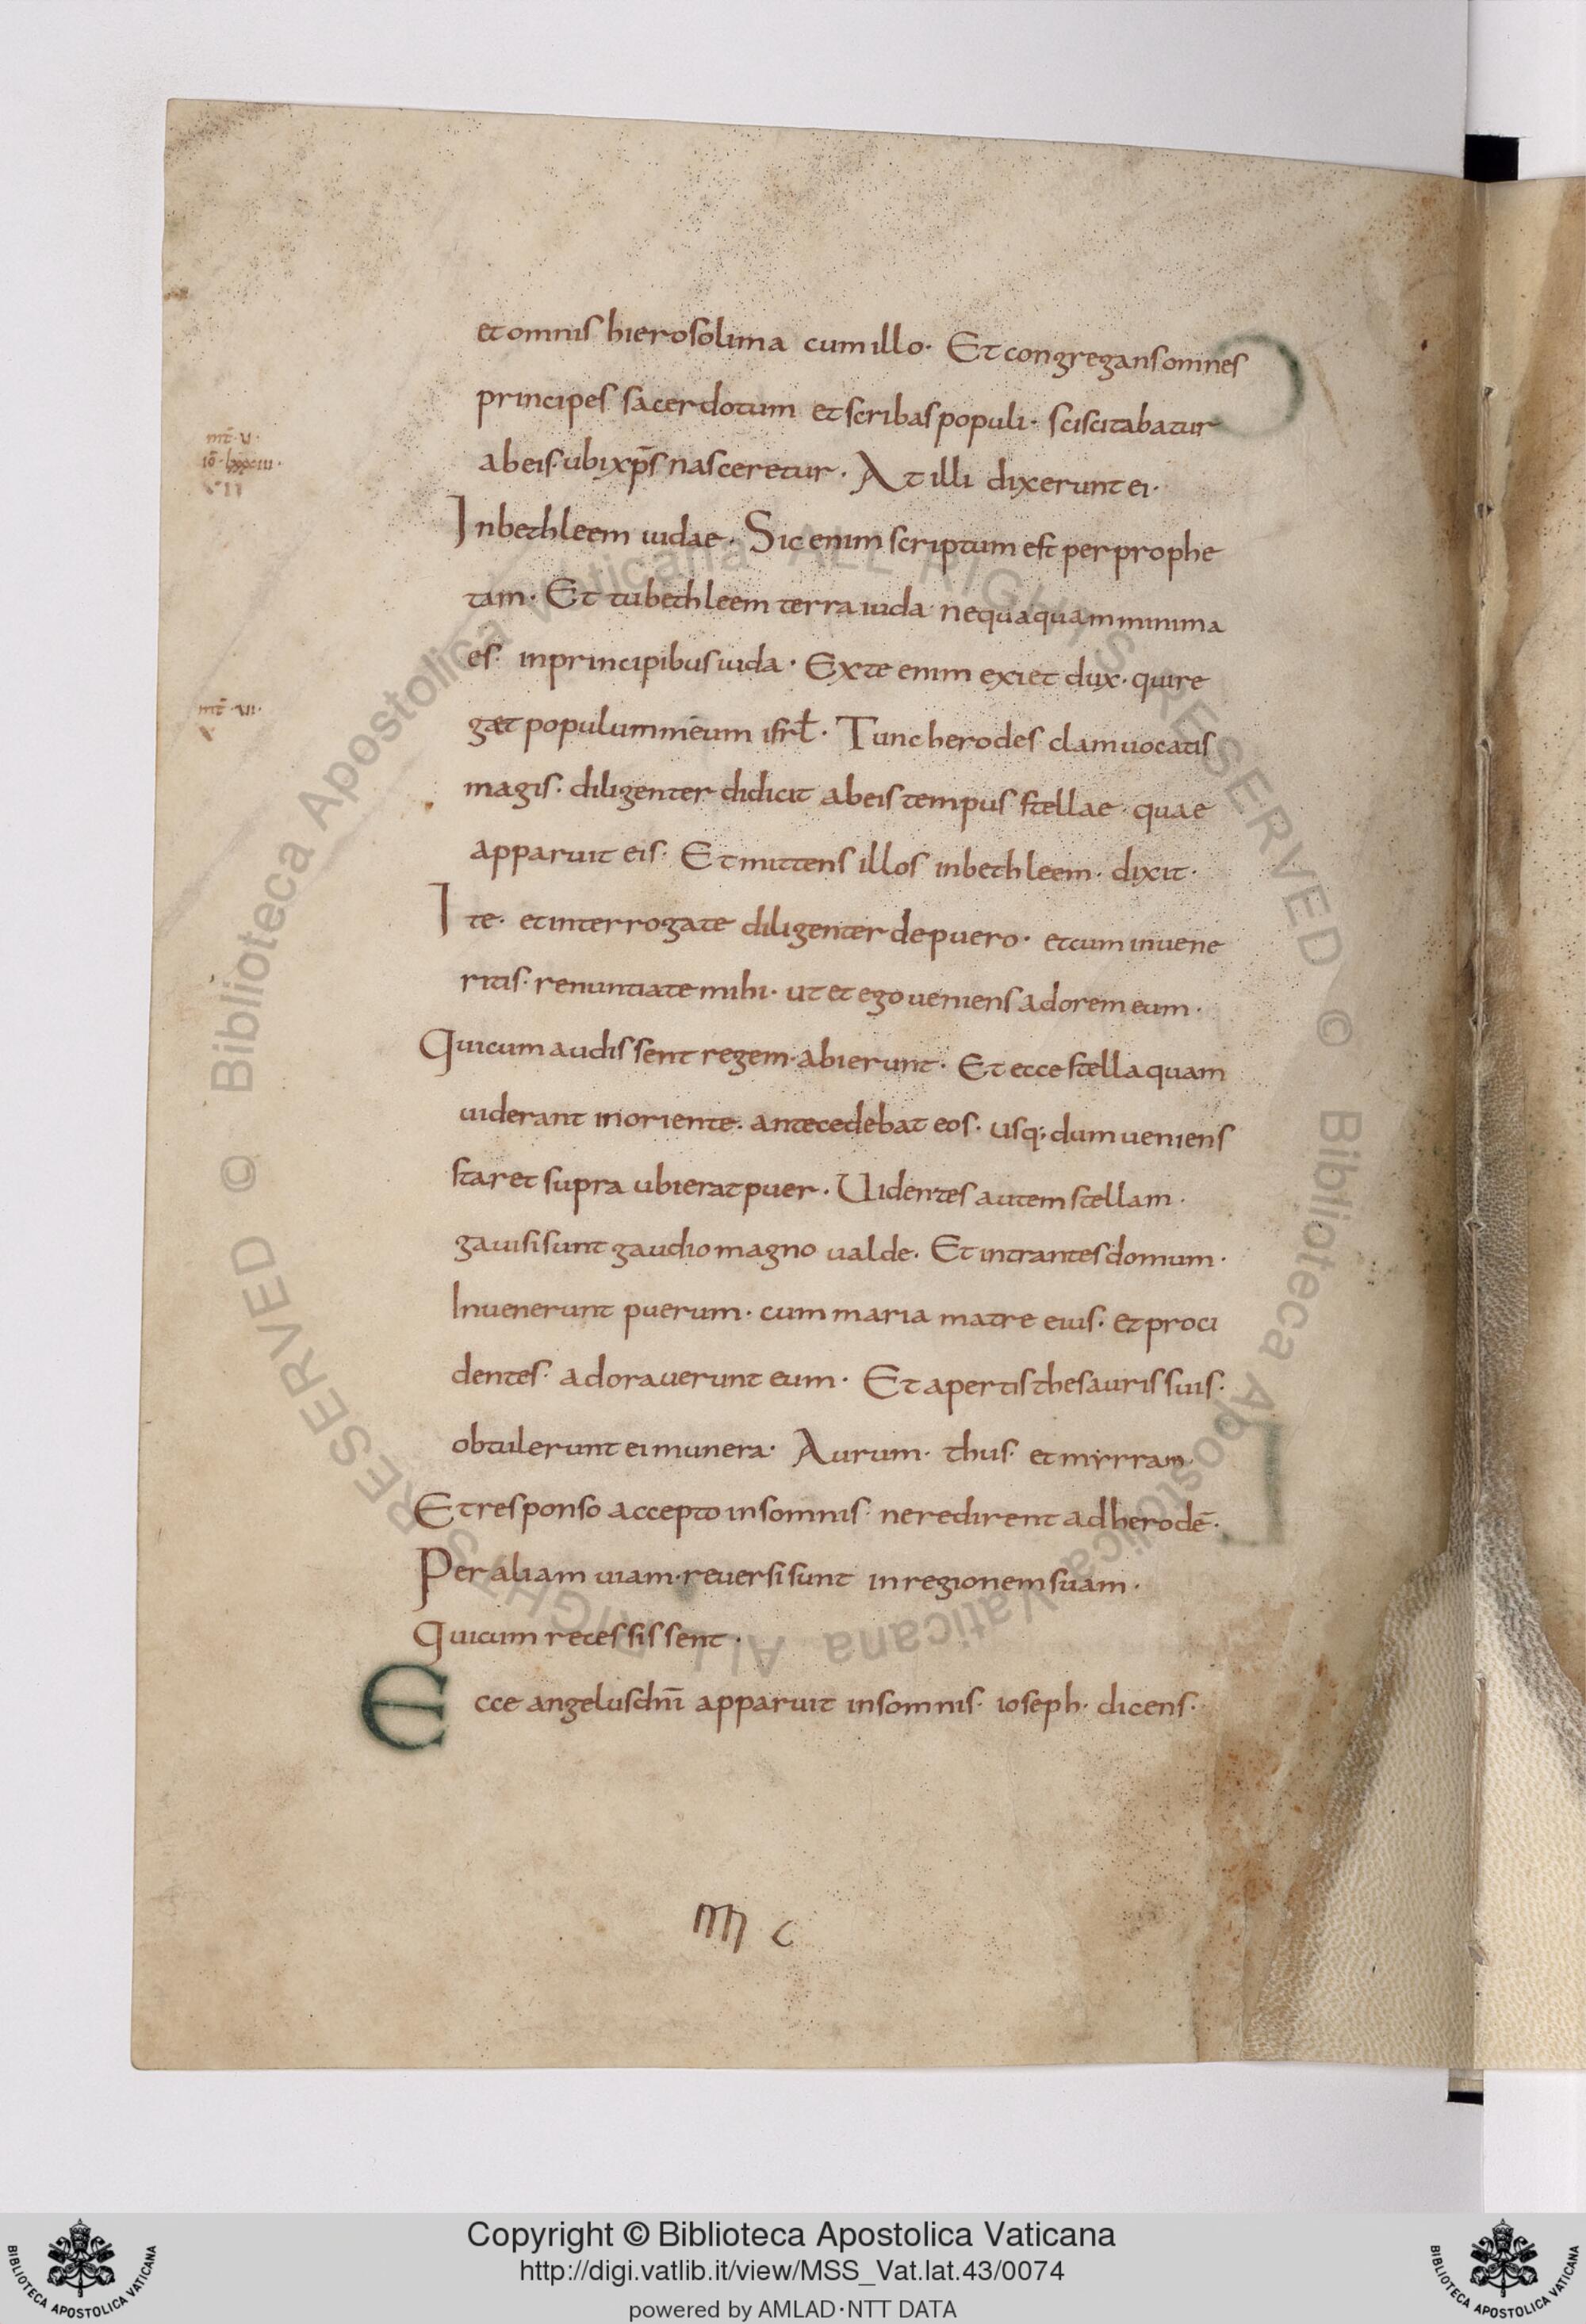 et omnis hierosolima cum illo· Et congregans omnes
principes sacerdotum et scribas populi· sciscitabatur
mt̄·vi·
ab eis· ubi xp̄s nasceretur· At illi dixerunt ei·
In bethleem iudae· Sic enim scriptum est per prophe
tam· Et tu bethleem terra iuda nequaquam minima
es· in principibus iuda· Ex te enim exiet dux· qui re
mt̄·vii·
gaet populum meum isrł· Tunc herodes clam uocatis
magis· diligenter didicit ab eis tempus stellae· quae
apparuit eis· Et mittens illos in bethleem· dixit·
Ite· et interrogate diligenter de puero· et cum inuene
ritis· renuntiate mihi· ut et ego ueniens adorem eum·
Qui cum audissent regem· abierunt· Et ecce stella quam
uiderant in oriente· antecedebat eos· usq; dum ueniens
staret supra ubi erat puer· Uidentes autem stellam·
gauisi sunt gaudio magno ualde· Et intrantes domum·
Inuenerunt puerum· cum maria matre eius· et proci
dentes· adorauerunt eum· Et apertis thesauris suis·
obtulerunt ei munera· Aurum· thus· et myrram·
Et responso accepto in somnis· ne redirent ad herodē·
Per aliam uiam· reuersi sunt in regionem suam·
Qui cum recessissent·
Ecce angelus dn̄i apparuit in somnis· ioseph· dicens·
m c
© Biblioteca Apostolica Vaticana ALL RIGHTS RESERVED © Biblioteca Apostolica Vaticana ALL RIGHTS RESERVED
Copyright © Biblioteca Apostolica Vaticana
http://digi.vatlib.it/view/MSS_Vat.lat.43/0074
powered by AMLAD·NTT DATA
BIBLIOTECA APOSTOLICA VATICANA
BIBLIOTECA APOSTOLICA VATICANA